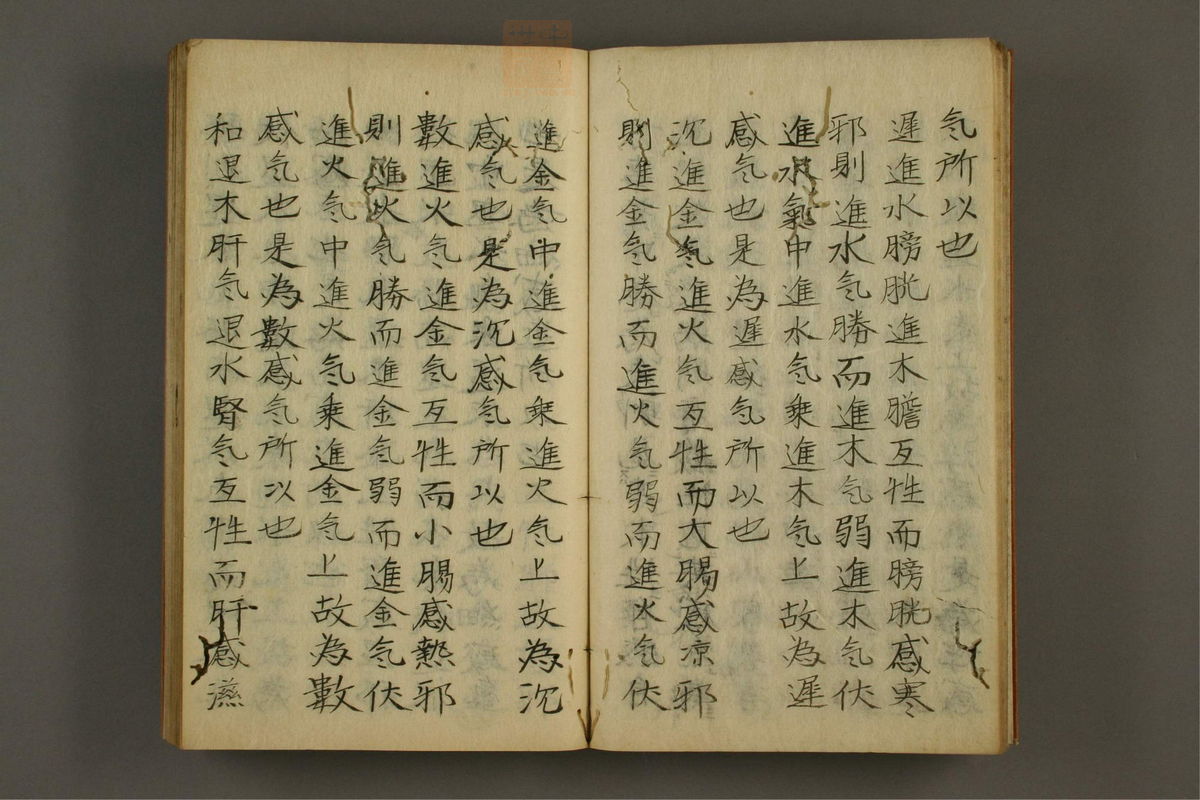 気所以也
遅進水膀胱進木膽互性而膀胱感寒
邪則進水気勝而進木気弱進木気伏
進水氣中進水気乗進木気上故為遅
感気也是為遅感気所以也
沉進金気進火気互性而大腸感凉邪
則進金気勝而進火気弱而進火気伏
進金気中進金気乗進火気上故為沉
感気也是為沉感気所以也
數進火気進金気互性而小腸感熱邪
則進火気勝而進金気弱而進金気伏
進火気中進火気乗進金気上故為數
感気也是為數感気所以也
和退木肝気退水腎気互性而肝感濕